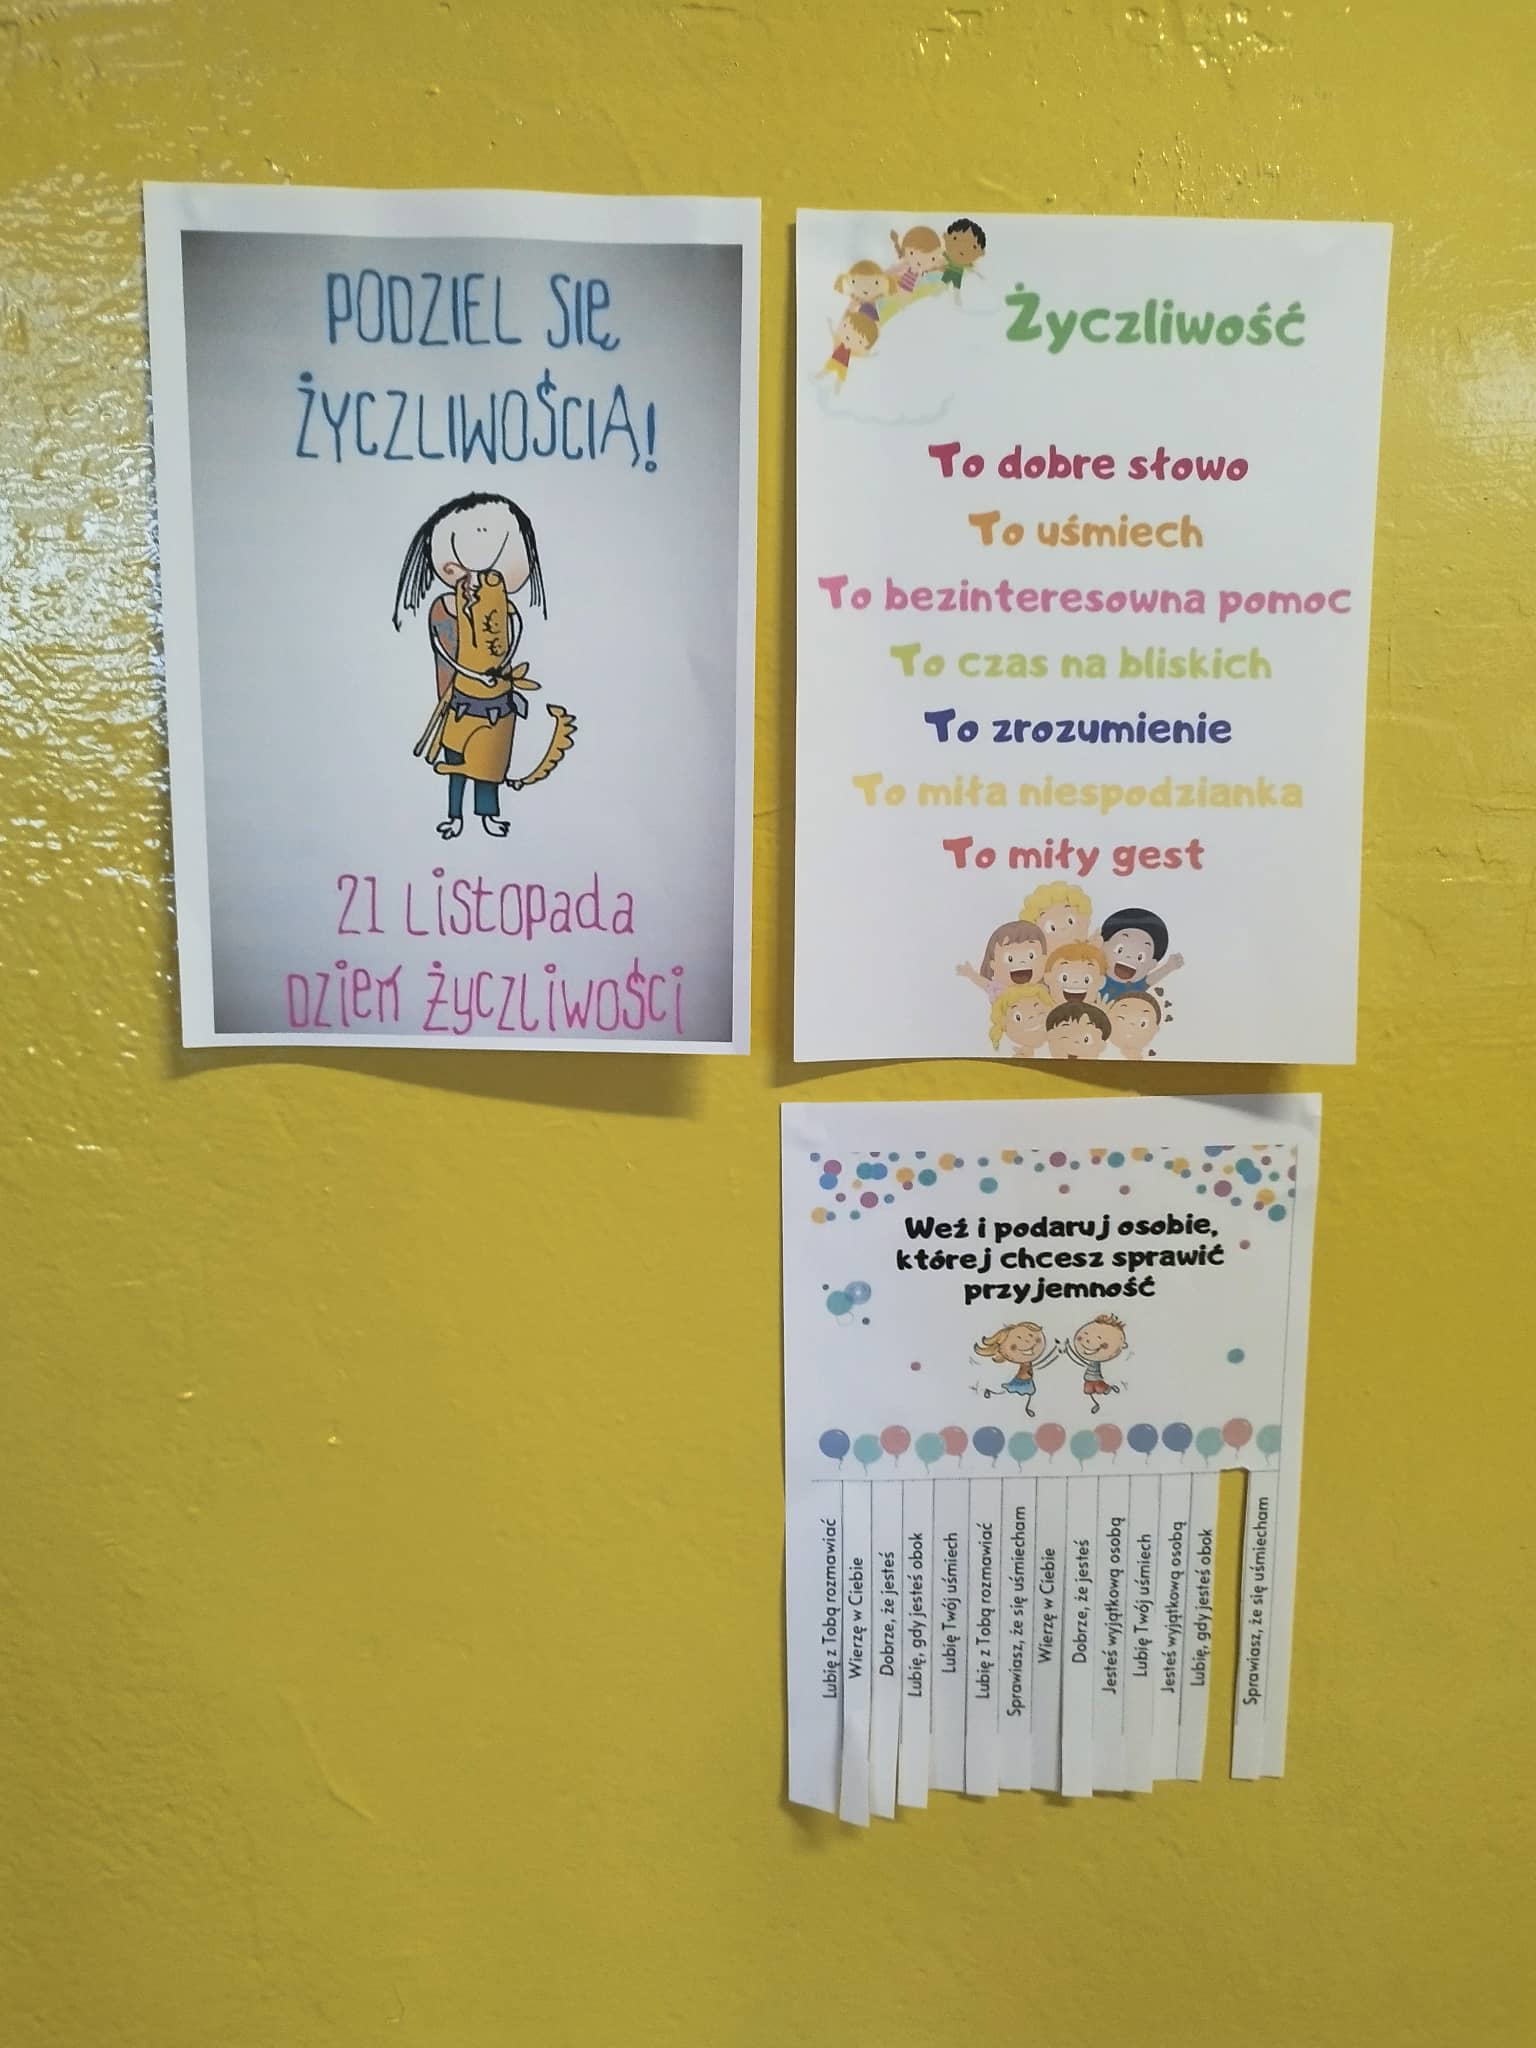 PODZIEL SIĘ
ŻYCZLIWOŚCIĄ!
21 LISTOPADA
DZIEŃ ŻYCZLIWOŚCI
Życzliwość
To dobre słowo
To uśmiech
To bezinteresowna pomoc
To czas na bliskich
To zrozumienie
To miła niespodzianka
To miły gest
Weź i podaruj osobie,
której chcesz sprawić
przyjemność
Lubię z Tobą rozmawiać
Wierzę w Ciebie
Dobrze, że jesteś
Lubię, gdy jesteś obok
Lubię Twój uśmiech
Lubię z Tobą rozmawiać
Sprawiasz, że się uśmiecham
Wierzę w Ciebie
Dobrze, że jesteś
Jesteś wyjątkową osobą
Lubię Twój uśmiech
Jesteś wyjątkową osobą
Lubię, gdy jesteś obok
Sprawiasz, że się uśmiecham